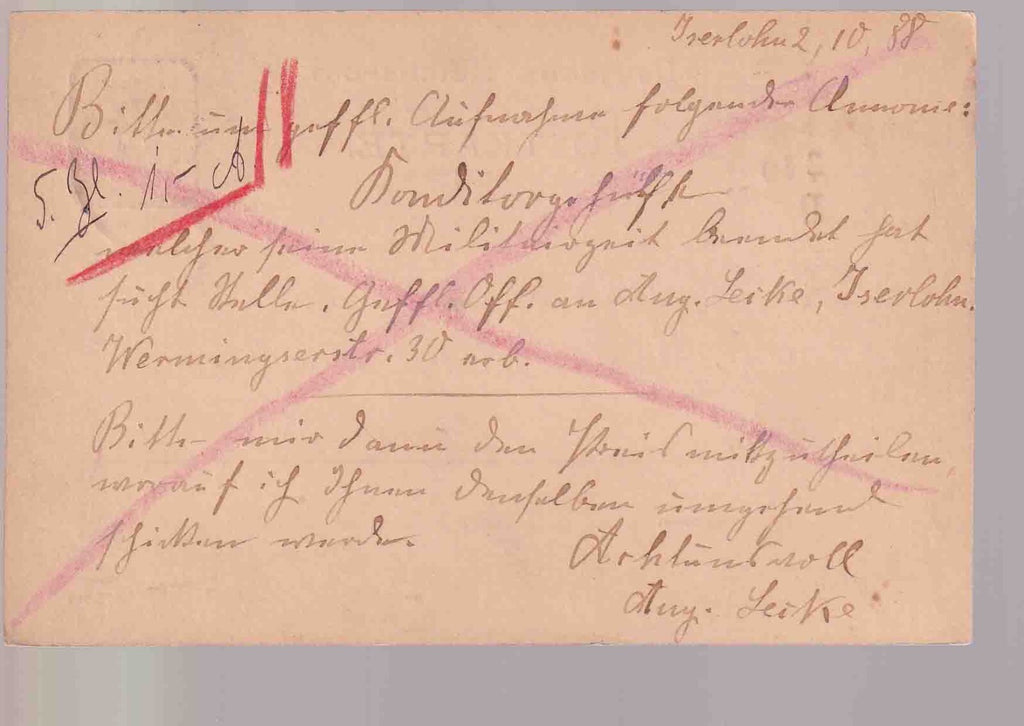 Iserlohn 2, 10, 88
Bitte um geffl. Aufnahme folgender Annonce:
5. Bl. 1,-
Konditorgehülfe
welcher seine Militairzeit beendet hat
sucht Stelle. Geffl. Off. an Aug. Leike, Iserlohn.
Wermingserstr. 30 erb.
Bitte mir dann den Preis mitzutheilen,
worauf ich Ihnen denselben umgehend
schicken werde.
Achtungsvoll
Aug. Leike